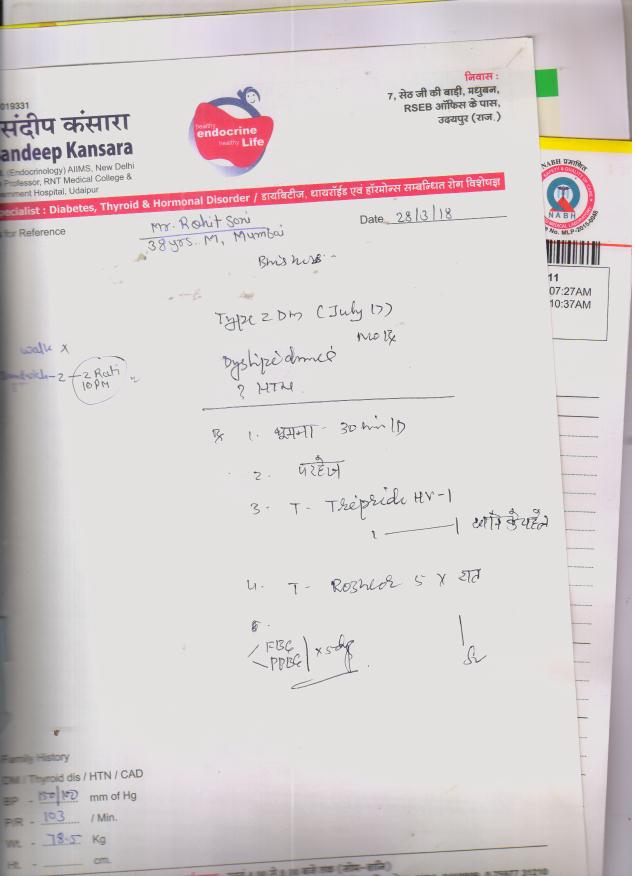 019331
संदीप कंसारा
andeep Kansara
(Endocrinology) AIIMS, New Delhi
Professor, RNT Medical College &
ernment Hospital, Udaipur
healthy
endocrine
healthy Life
निवास :
7, सेठ जी की बाड़ी, मधुबन,
RSEB ऑफिस के पास,
उदयपुर (राज.)
pecialist : Diabetes, Thyroid & Hormonal Disorder / डायबिटीज, थायरॉईड एवं हॉरमोन्स सम्बन्धित रोग विशेषज्ञ
for Reference
Mr. Rohit Soni
Date 28/3/18
38 yrs. M, Mumbai
NABH प्रमाणित
NABH
No. MLP-2015-0046
11
07:27AM
10:37AM
Type 2 DM (July 17)
No Rx
walk x
2 - 2 Roti
10 PM
? HTN
Rx 1. घूमना - 30 min / D
2. परहेज
3. T - Tripride HV-1
1 1 खाने के पहले
4. T - 5 x रात
5.
FBG
PPBG
x 5 day
Family History
DM / Thyroid dis / HTN / CAD
BP - 150/100 mm of Hg
P/R - 103 / Min.
Wt. - 78.5 Kg
Ht. - cm.